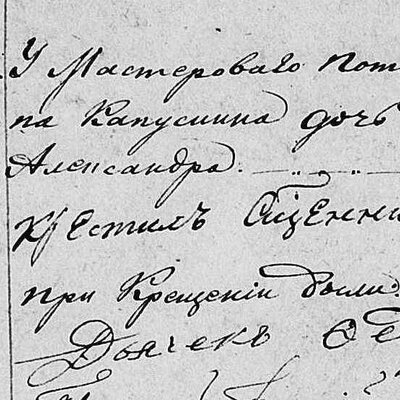 У Мастероваго Пот
па Капустина дочь
Александра.
Крестилъ Сщенни
при Крещеніи были:
Дьячекъ Ѳе